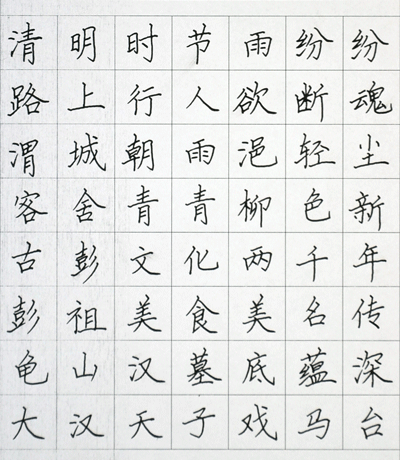 清明时节雨纷纷
路上行人欲断魂
渭城朝雨浥轻尘
客舍青青柳色新
古彭文化两千年
彭祖美食美名传
龟山汉墓底蕴深
大汉天子戏马台